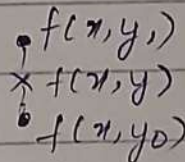 f(x, y,)
× f(x, y)
f(x, y0)